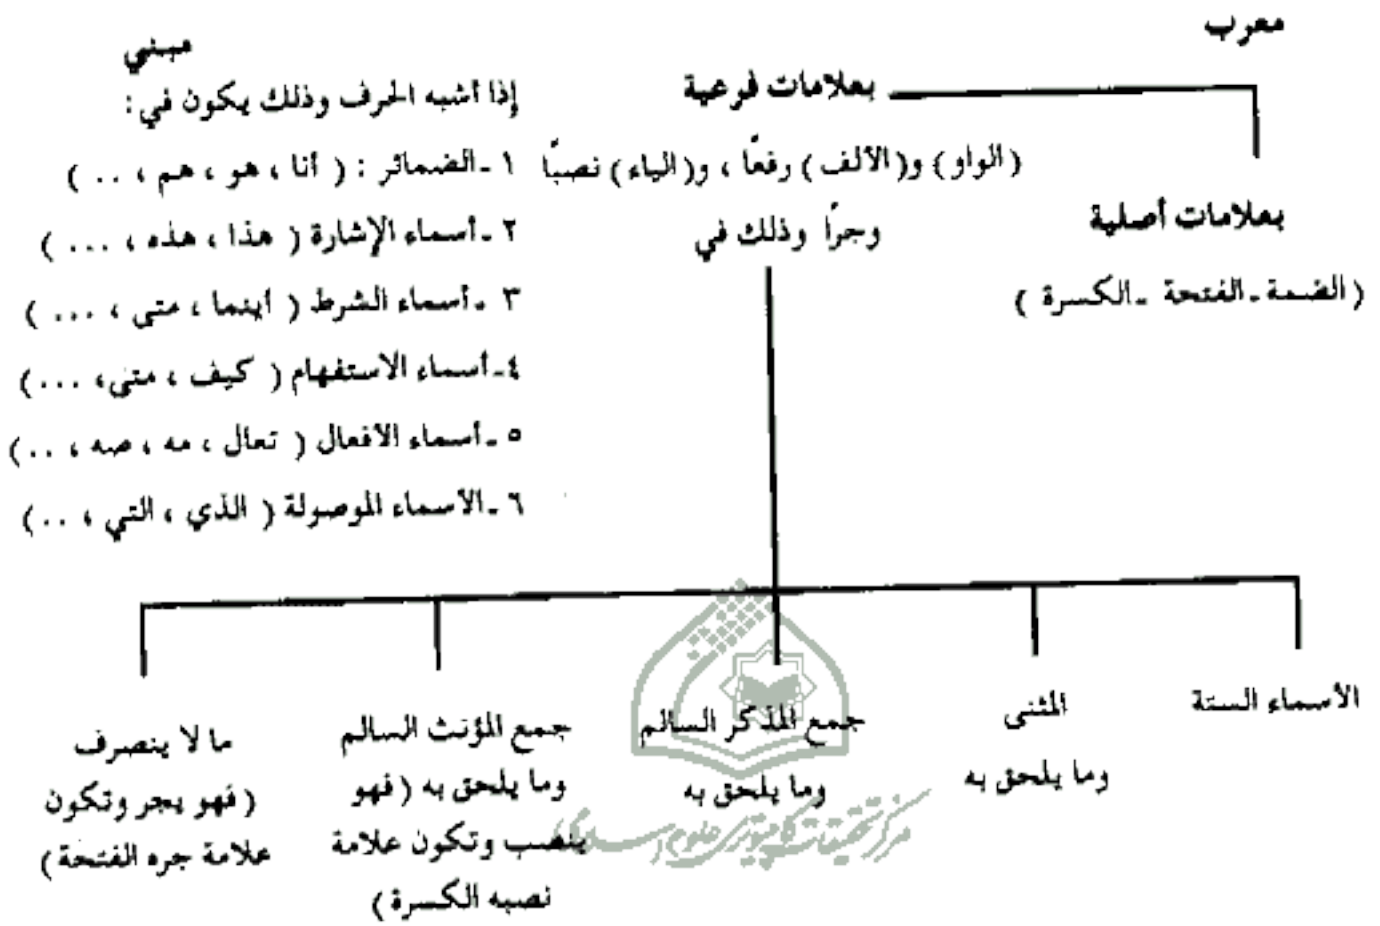 معرب
بعلامات فرعية
(الواو) و(الألف) رفعًا ، و(الياء) نصبًا
وجرًا وذلك في
بعلامات أصلية
(الضمة ـ الفتحة ـ الكسرة )
مبني
إذا أشبه الحرف وذلك يكون في :
١ ـ الضمائر : ( أنا ، هو ، هم ، .. )
٢ ـ أسماء الإشارة ( هذا ، هذه ، ... )
٣ ـ أسماء الشرط ( أينما ، متى ، ... )
٤ـ أسماء الاستفهام ( كيف ، متى، ...)
٥ ـ أسماء الأفعال ( تعال ، مه ، صه ، ..)
٦ ـ الأسماء الموصولة ( الذي ، التي ، ..)
الأسماء الستة
المثنى
وما يلحق به
جمع المذكر السالم
وما يلحق به
جمع المؤنث السالم
وما يلحق به (فهو
ينصب وتكون علامة
نصبه الكسرة )
ما لا ينصرف
( فهو يجر وتكون
علامة جره الفتحة )
مرکز تحقیقات کامپیوتری علوم اسلامی